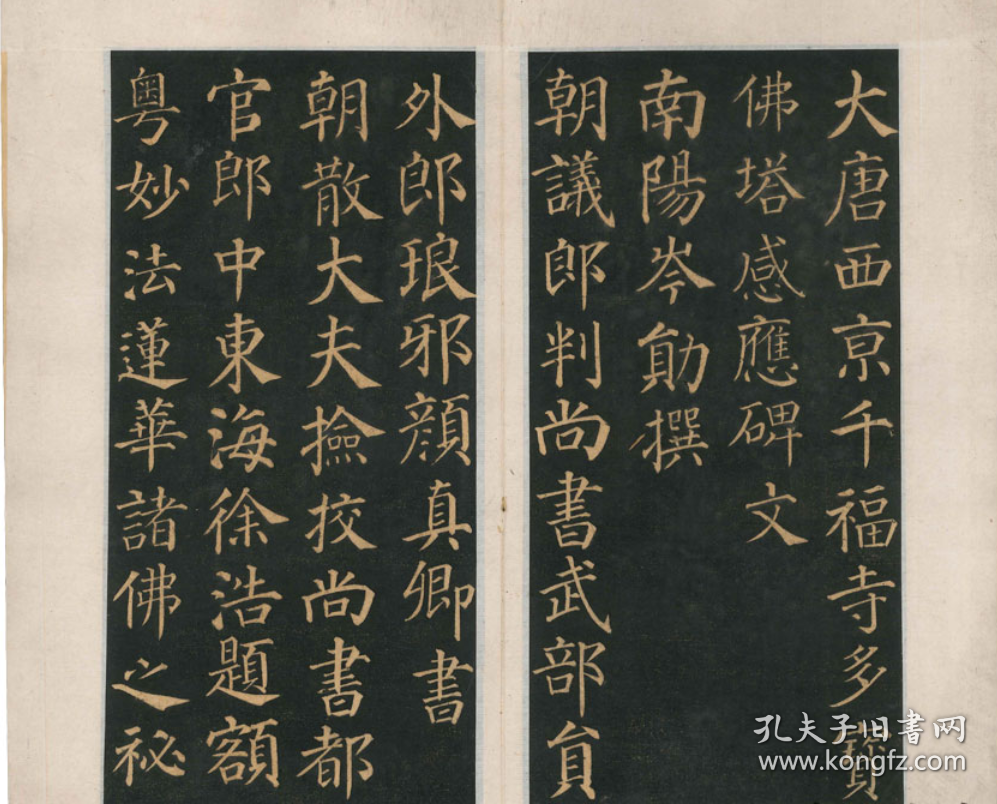 大唐西京千福寺多寳
佛塔感應碑文
南陽岑勛撰
朝議郎判尚書武部員
外郎琅邪顏真卿書
朝散大夫撿挍尚書都
官郎中東海徐浩題額
粵妙法蓮華諸佛之祕
孔夫子旧书网
www.kongfz.com